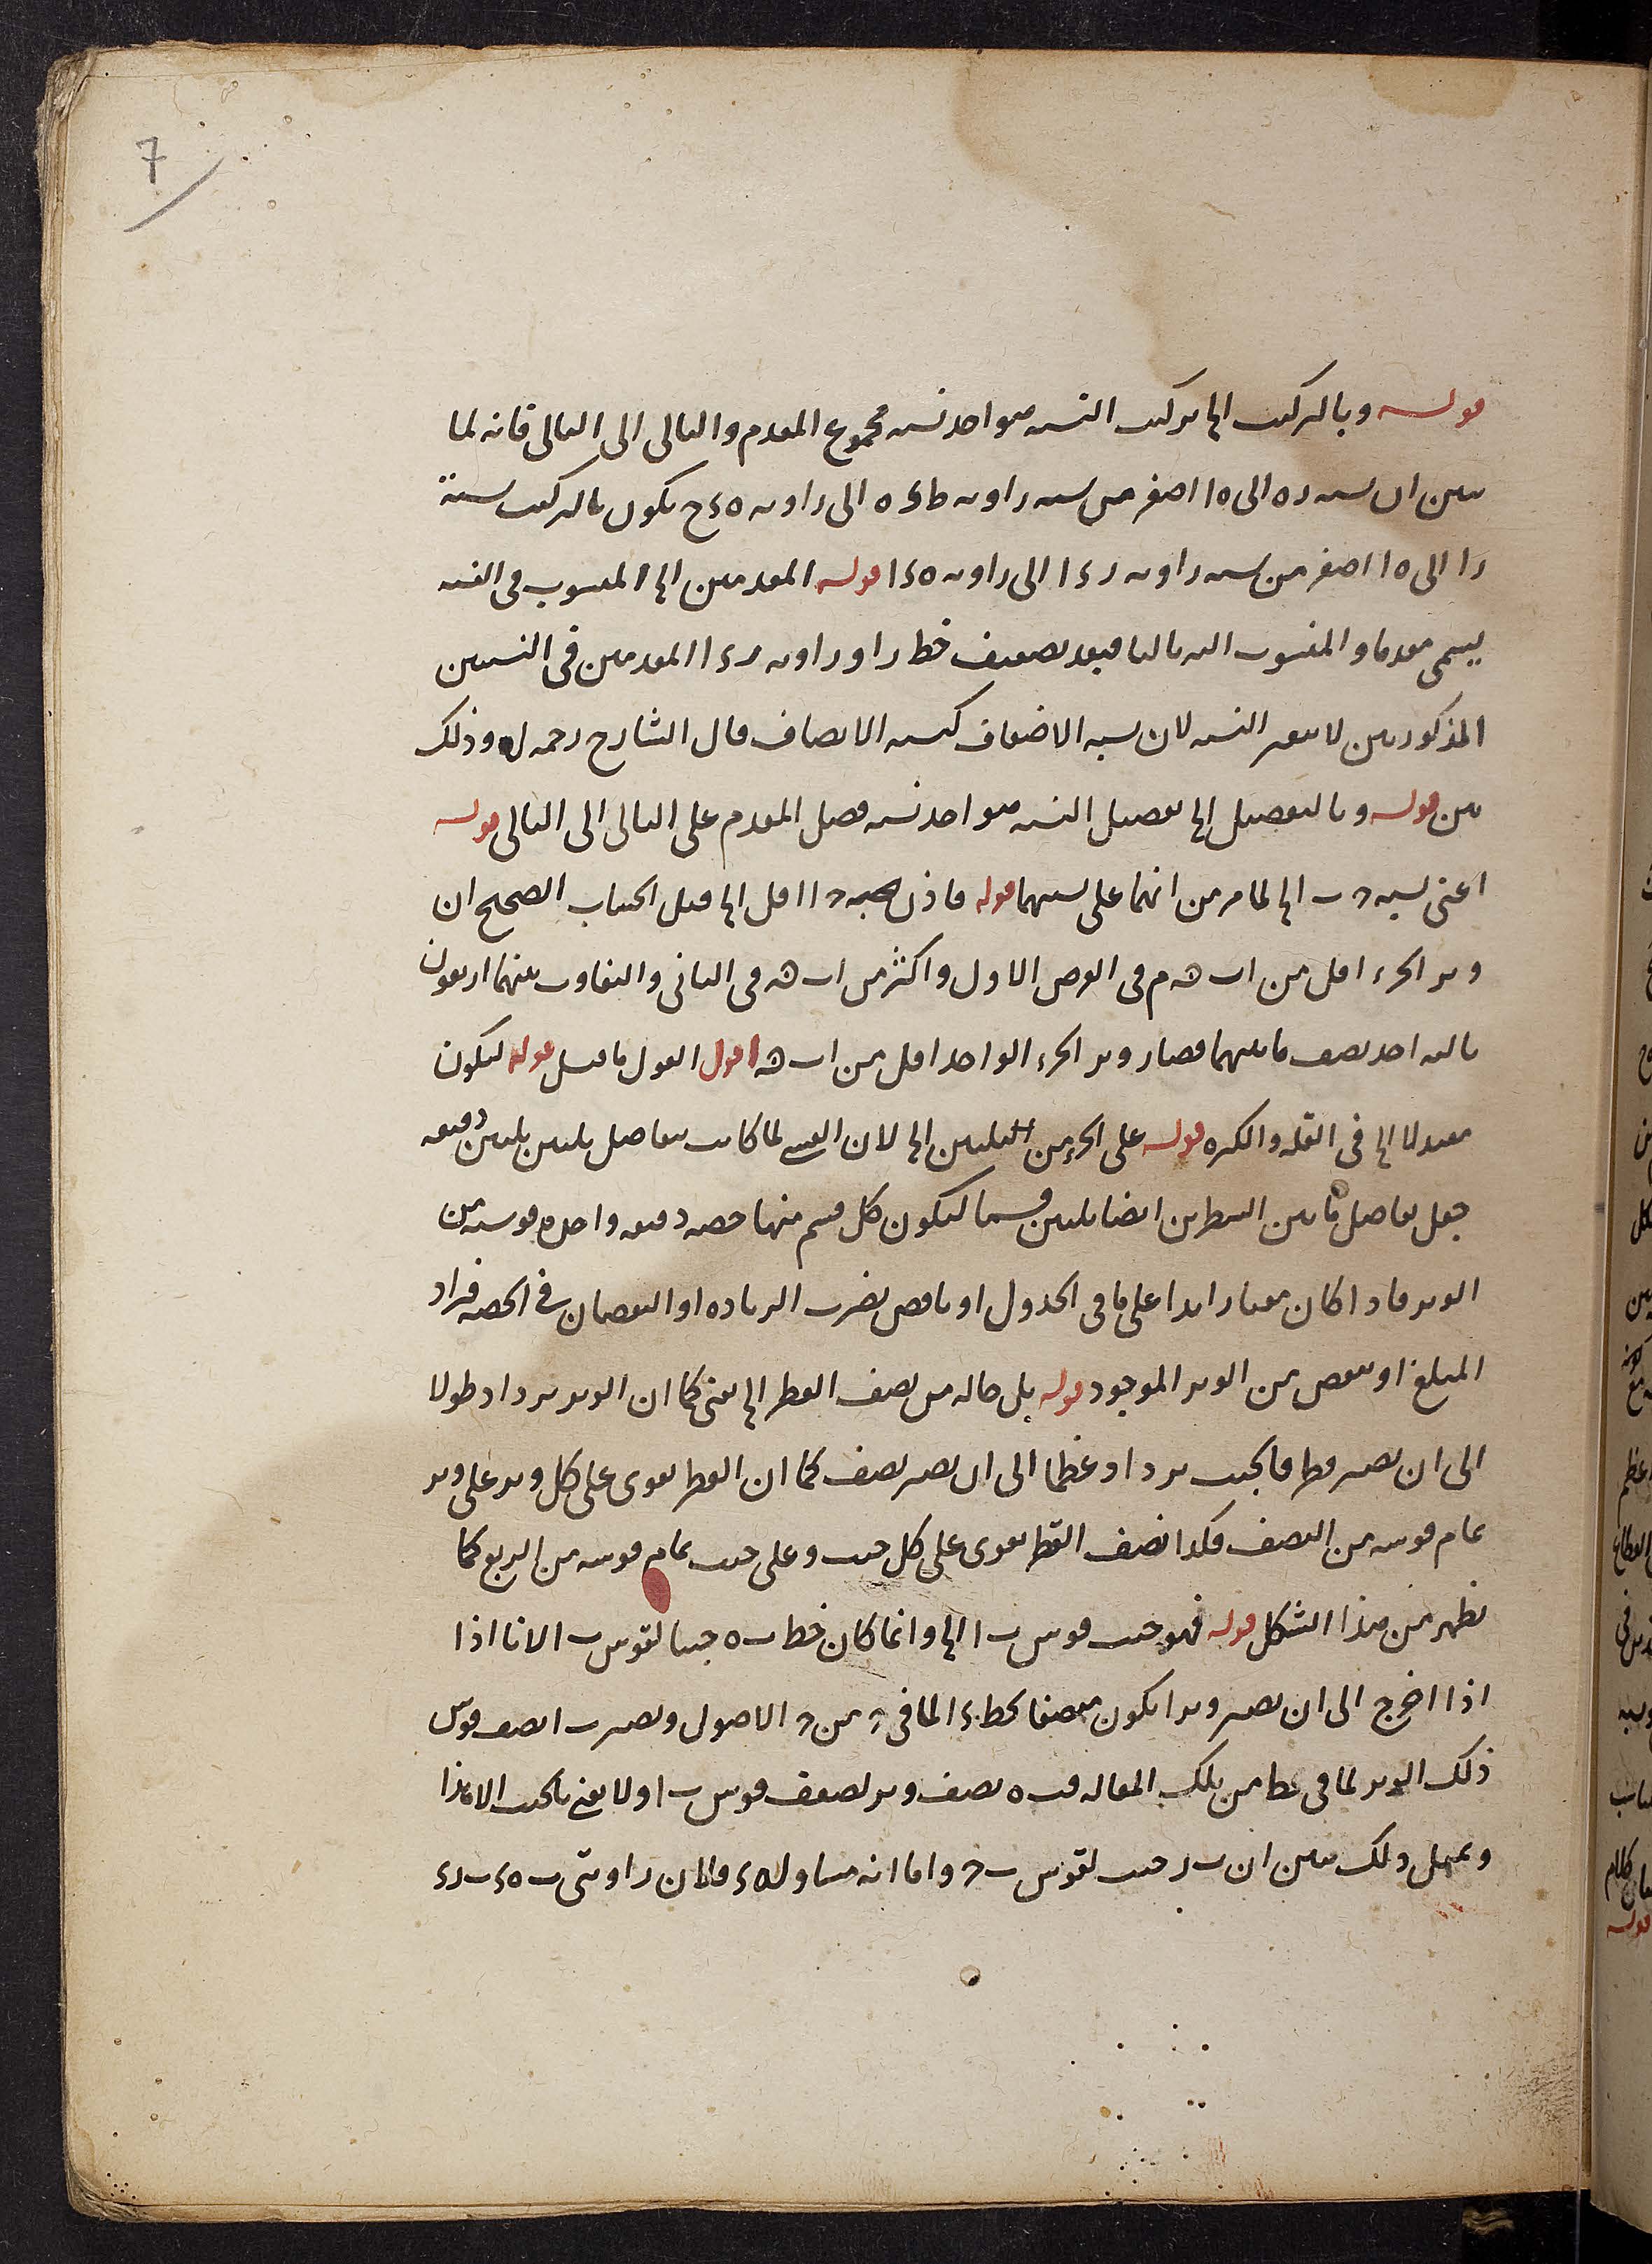 7
قوله وبالتركيب الخ تركيب النسبة هو اخذ نسبة مجموع المقدم والتالى الى التالى فانه لما
تبين ان نسبة ر ه الى ه ا اصغر من نسبة زاوية ط ء ه الى زاوية ه ء ح يكون بالتركيب نسبة
را الى ه ا اصغر من نسبة زاوية ر ء ا الى زاوية ه ء ا قوله المقدمين الخ المنسوب فى النسبة
يسمى مقدما والمنسوب اليه تاليا فبعد تضعيف خط را وزاوية ر ء ا المقدمين فى النسبتين
المذكورتين لا يتغير النسبة لان نسبة الاضعاف كنسبة الانصاف قال الشارح رحمه الله وذلك
بين قوله وبالتفصيل الخ تفصيل النسبة هو اخذ نسبة فضل المقدم على التالى الى التالى قوله
اعنى نسبة ح ب الخ لما مر من انهما على نسبتهما قوله فاذن ا اقل الخ قيل الحساب الصحيح ان
وتر الجزء اقل من ا ب م فى الفرض الاول واكثر من ا ب فى الثانى والتفاوت بينهما اربعون
ثالثة اخذ نصف ما بينهما فصار وتر الجزء الواحد اقل من ا ب اقول القول ما قيل قوله ليكون
معتدلا الخ فى القلة والكثرة قوله على الجزء من الثلثين الخ لان القسى لما كانت بتفاضل ثلثين ثلثين دقيقة
جعل تفاضل ما بين السطرين ايضا ثلثين قسما ليكون كل قسم منها حصة دقيقة واحدة قوسية من
الوتر فاذا كان معنا زايدا على ما فى الجدول او ناقص نضرب الزيادة او النقصان فى الحصة فزاد
المبلغ او ينقص من الوتر الموجود قوله بل حاله من نصف القطر الخ يعنى كما ان الوتر يزداد طولا
الى ان يصير قطرا فالجيب يزداد عظما الى ان يصير نصف كما ان القطر يقوى على كل وتر على وتر
تمام قوسه من النصف فكذا نصف القطر يقوى على كل جيب وعلى جيب تمام قوسه من الربع كما
يظهر من هذا الشكل قوله فهو جيب قوس ب ا الخ وانما كان خط ب ه جيبا لقوس ب ا لانا اذا
اذا اخرج الى ان يصير وترا يكون منصفا بخط ء ا لما فى من الاصول ويصير ب ا نصف قوس
ذلك الوتر لما فى من تلك المقالة فب ه نصف وتر لضعف قوس ب ا ولا يعنى بالجيب الا هذا
وبمثل ذلك تبين ان ب ر جيب لقوس ب ح واما انه مساو له ء فلان زاويتى ب ه ء ب ر ء